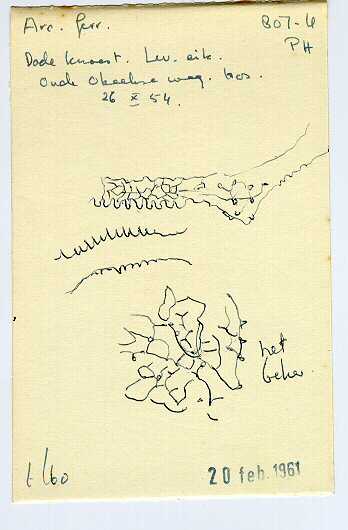 Arc. ferr.
BOT-4
PH
Dode knoest. Lev. eik.
Oude weg. bos.
26 X 54.
net
beker.
t/60
20 feb. 1961